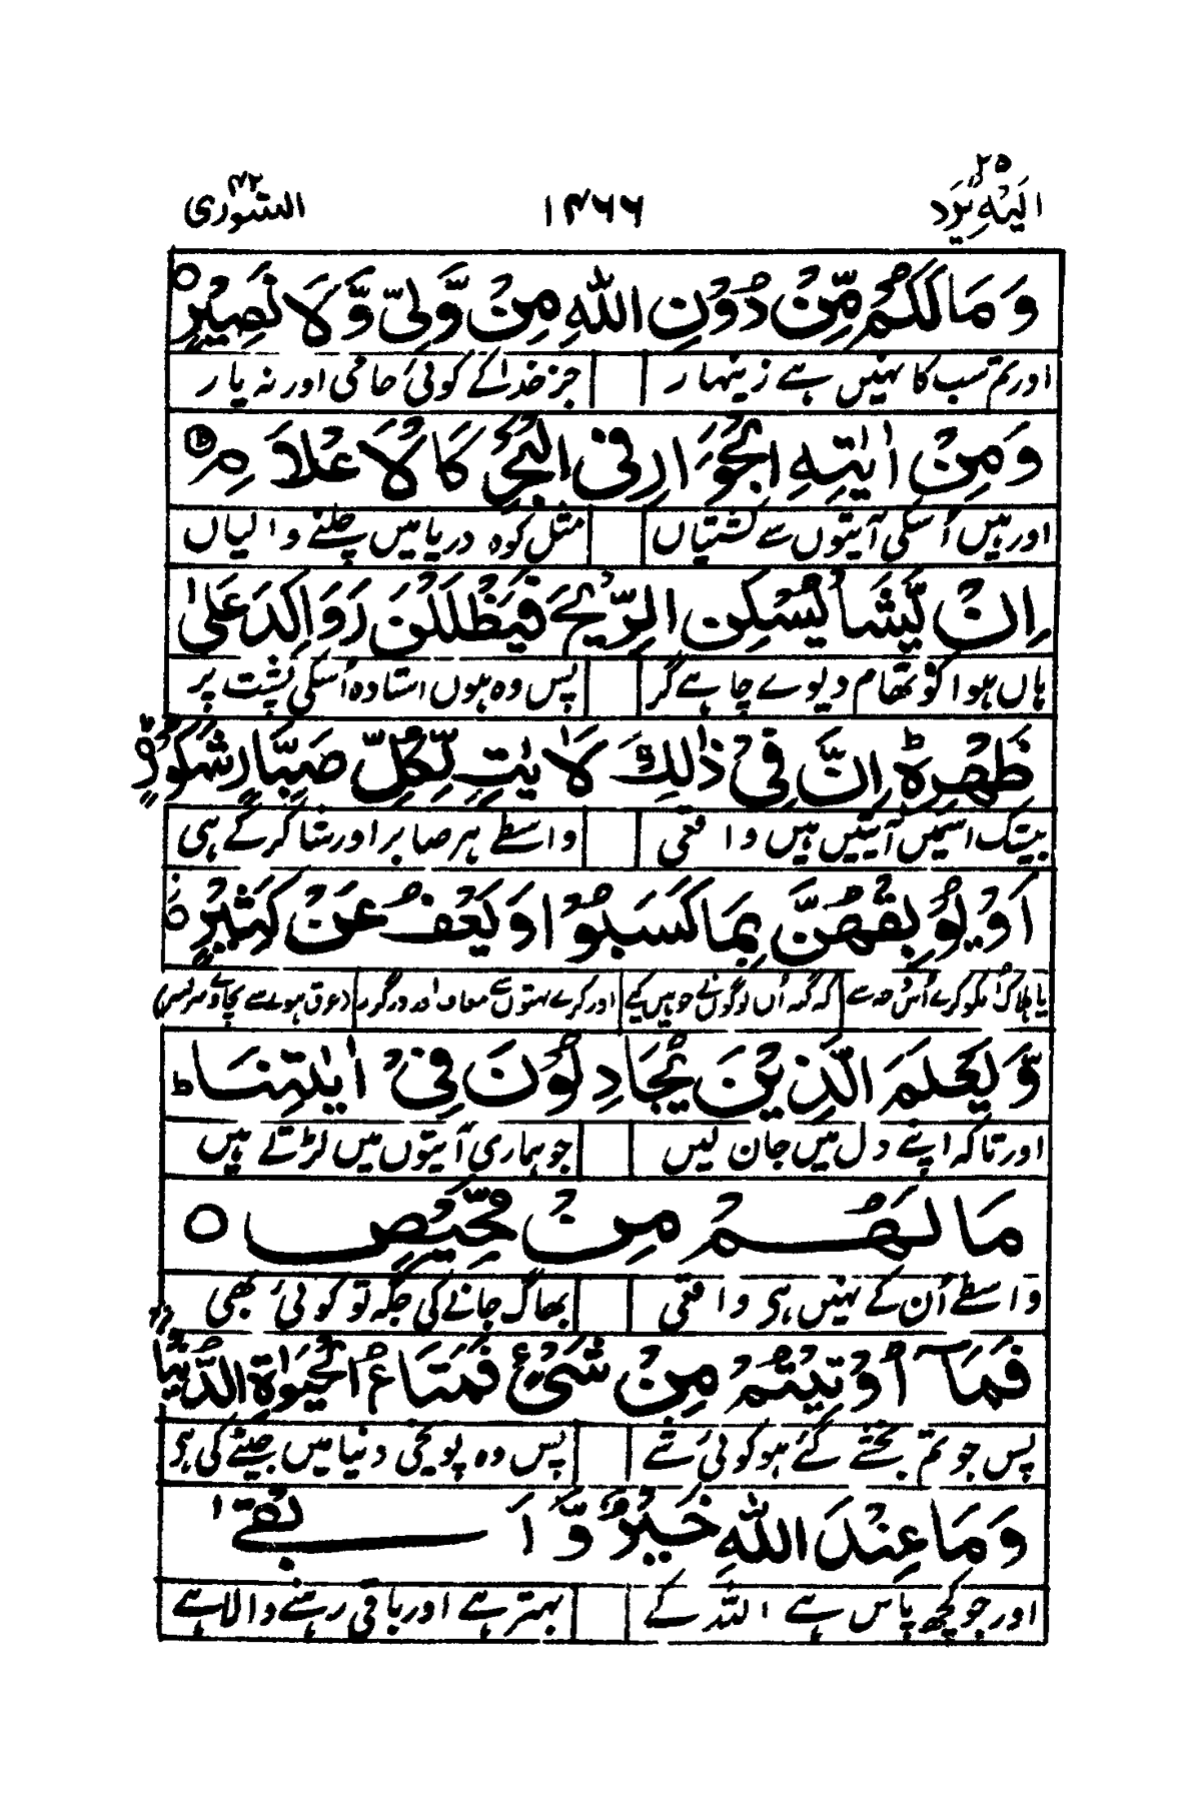 الیہ یرد ۲۵ ۱۴۶۶ الشوری ۴۲
وَمَا لَكُمْ مِّنْ دُوْنِ اللّٰهِ مِنْ وَّلِیٍّ وَّلَا نَصِیْرٍ ○
اور تم سب کا نہیں ہے زینہار جز خدا کے کوئی حامی اور نہ یار
وَمِنْ اٰیٰتِهِ الْجَوَارِ فِی الْبَحْرِ كَالْاَعْلَامِ
اور ہیں اُسکی آیتوں سے کشتیاں مثل کوہ دریا میں چلنے والیاں
اِنْ یَّشَاْ یُسْكِنِ الرِّیْحَ فَیَظْلَلْنَ رَوَاكِدَ عَلٰی
ہاں ہوا کو تھام دیوے چاہے گر پس وہ ہوں استادہ اُسکی پشت پر
ظَهْرِهٖ ؕ اِنَّ فِیْ ذٰلِكَ لَاٰیٰتٍ لِّكُلِّ صَبَّارٍ شَكُوْرٍ
بیشک اسمیں آیتیں ہیں واقعی واسطے ہر صابر اور شاکر کے ہی
اَوْ یُوْبِقْهُنَّ بِمَا كَسَبُوْا وَیَعْفُ عَنْ كَثِیْرٍ ○
یا ہلاک اُنکو کرے اُس وجہ سے کہ گنہ اُن لوگوں نے جو ہیں کیے اور کرے بہتوں سے معاف اور درگزر (غرق ہونے سے بچاوے سر بسر)
وَّیَعْلَمَ الَّذِیْنَ یُجَادِلُوْنَ فِیْۤ اٰیٰتِنَا ؕ
اور تاکہ اپنے دل میں جان لیں جو ہماری آیتوں میں لڑتے ہیں
مَا لَهُمْ مِنْ مَّحِیْصٍ ○
واسطے اُن کے نہیں ہی واقعی بھاگ جانے کی جگہ تو کوئی بھی
فَمَاۤ اُوْتِیْتُمْ مِنْ شَیْءٍ فَمَتَاعُ الْحَیٰوةِ الدُّنْیَا
پس جو تم بخشے گئے ہو کوئی شے پس وہ پونجی دنیا میں جینے کی ہی
وَمَا عِنْدَ اللّٰهِ خَیْرٌ وَّاَبْقٰی
اور جو کچھ پاس ہے اللہ کے بہتر ہے اور باقی رہنے والا ہے